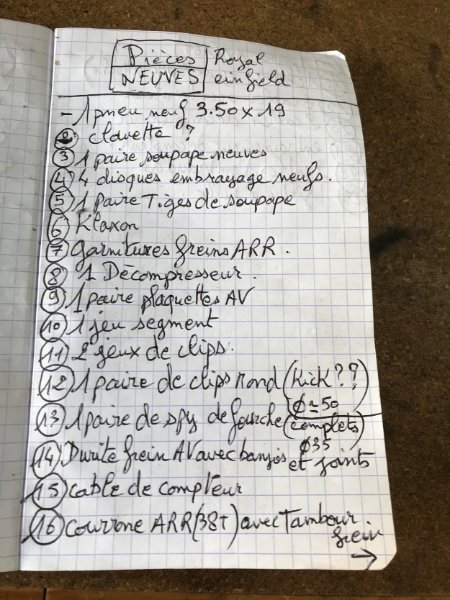 Pièces Royal
NEUVES einfield
- 1 pneu neuf 3.50 x 19
2 clavette ?
3 1 paire soupape neuves
4 4 disques embrayage neufs.
5 1 paire Tiges de soupape
6 Klaxon
7 garnitures freins ARR.
8 1 Décompresseur.
9 1 paire plaquettes AV
10 1 jeu segment
11 2 jeux de clips.
12 1 paire de clips rond (Kick??)
Ø≃50
13 1 paire de spy de fourche (complets)
Ø35
14 Durite frein AV avec banjos et joints
15 cable de compteur
16 couronne ARR (38T) avec Tambour
frein
→